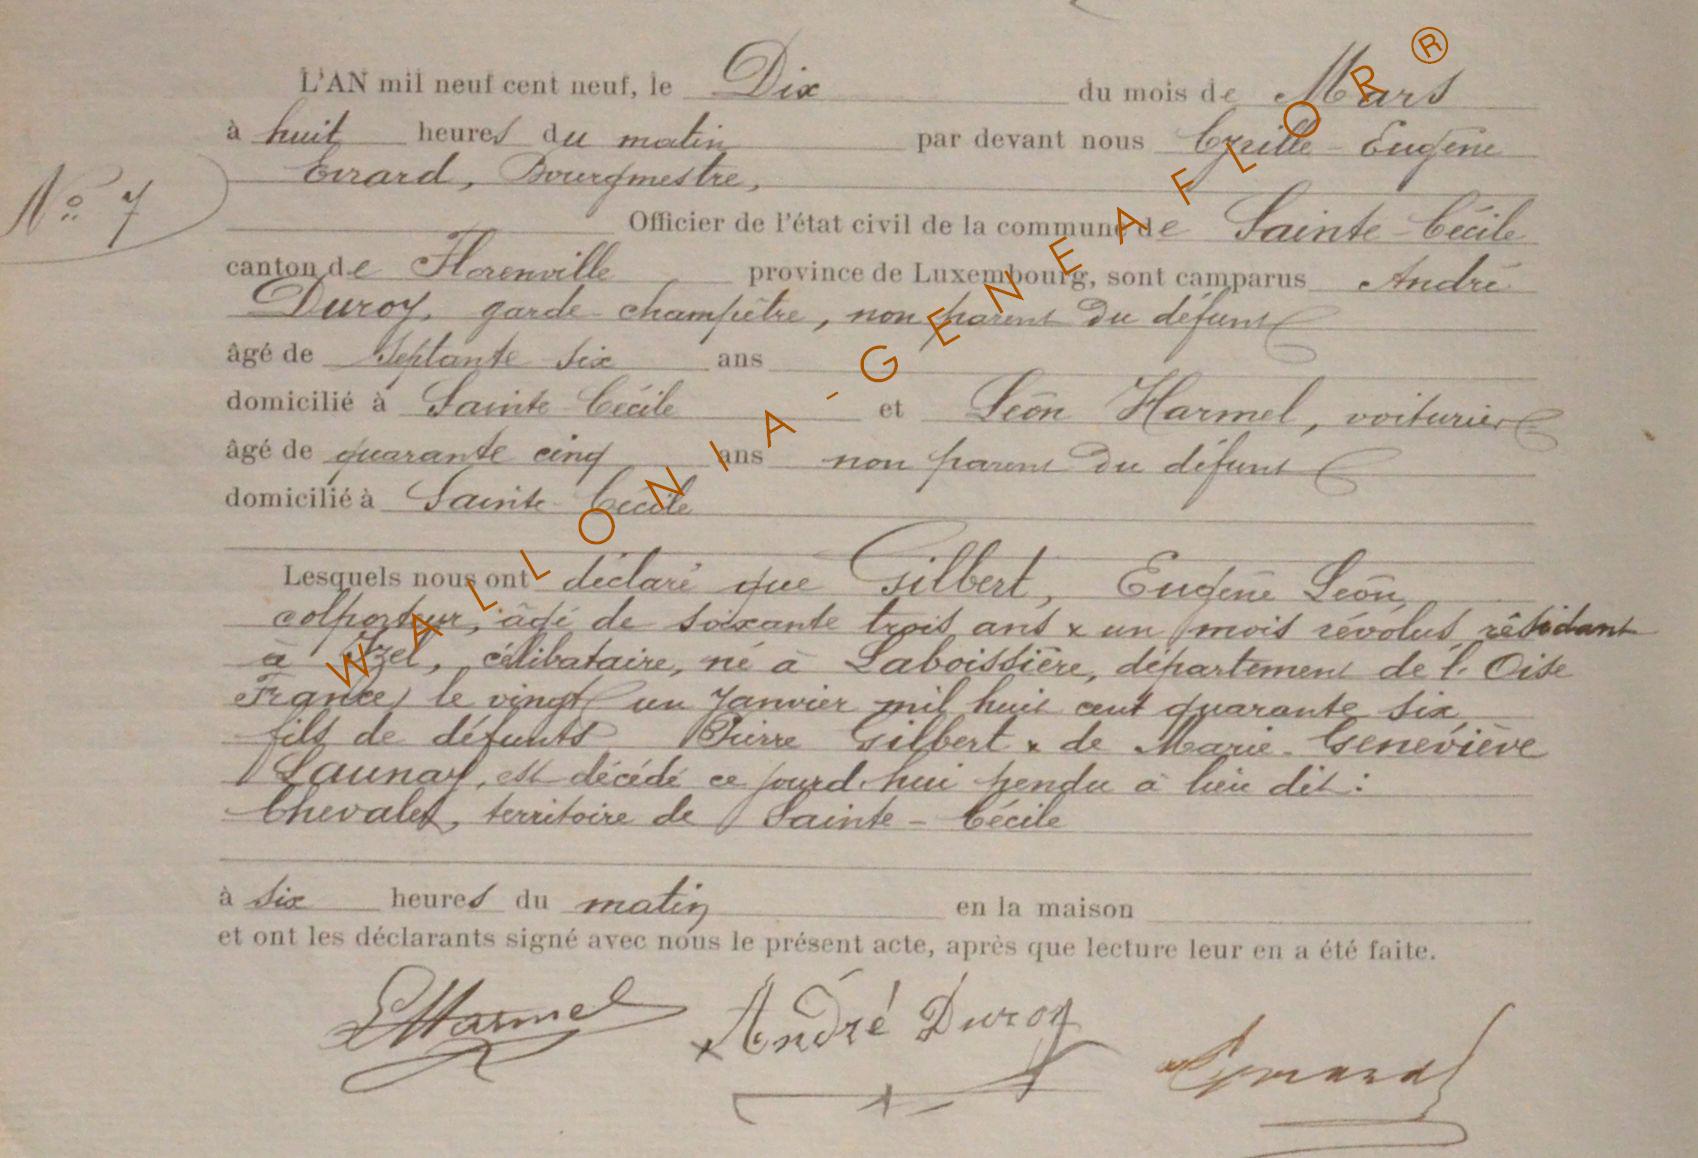 L'AN mil neuf cent neuf, le Dix du mois de Mars
à huit heures du matin par devant nous Cyrille Eugène
Evrard, Bourgmestre,
N° 7
Officier de l'état civil de la commune de Sainte-Cécile
canton de Florenville province de Luxembourg, sont camparus André
Duroy, garde-champêtre, non parent du défunt
âgé de septante six ans
domicilié à Sainte-Cécile et Léon Harmel, voiturier
âgé de quarante cinq ans non parent du défunt
domicilié à Sainte-Cécile
Lesquels nous ont déclaré que Gilbert, Eugène Léon,
colporteur, âgé de soixante trois ans & un mois révolus, résidant
à Izel, célibataire, né à Laboissière, département de l'Oise
France) le vingt un Janvier mil huit cent quarante six
fils de défunts Pierre Gilbert & de Marie-Geneviève
Launay, est décédé ce jourd'hui pendu à lieu dit :
Chevalet, territoire de Sainte-Cécile
à six heures du matin en la maison
et ont les déclarants signé avec nous le présent acte, après que lecture leur en a été faite.
LHarmel André Duroy Evrard
WALLONIA-GENEAFLOR®